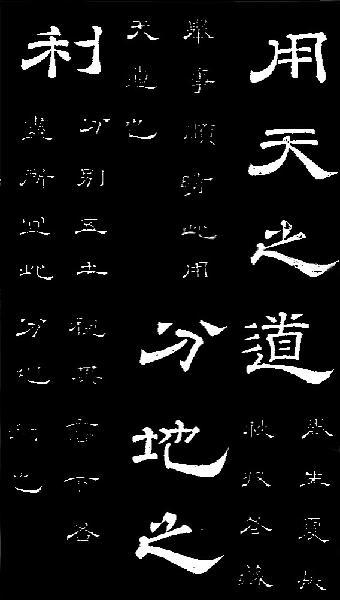 用天之道
春生夏長
秋收冬藏
舉事順時此用
天道也
分地之
利
分別五土視其高下各
盡所宜此分地利也